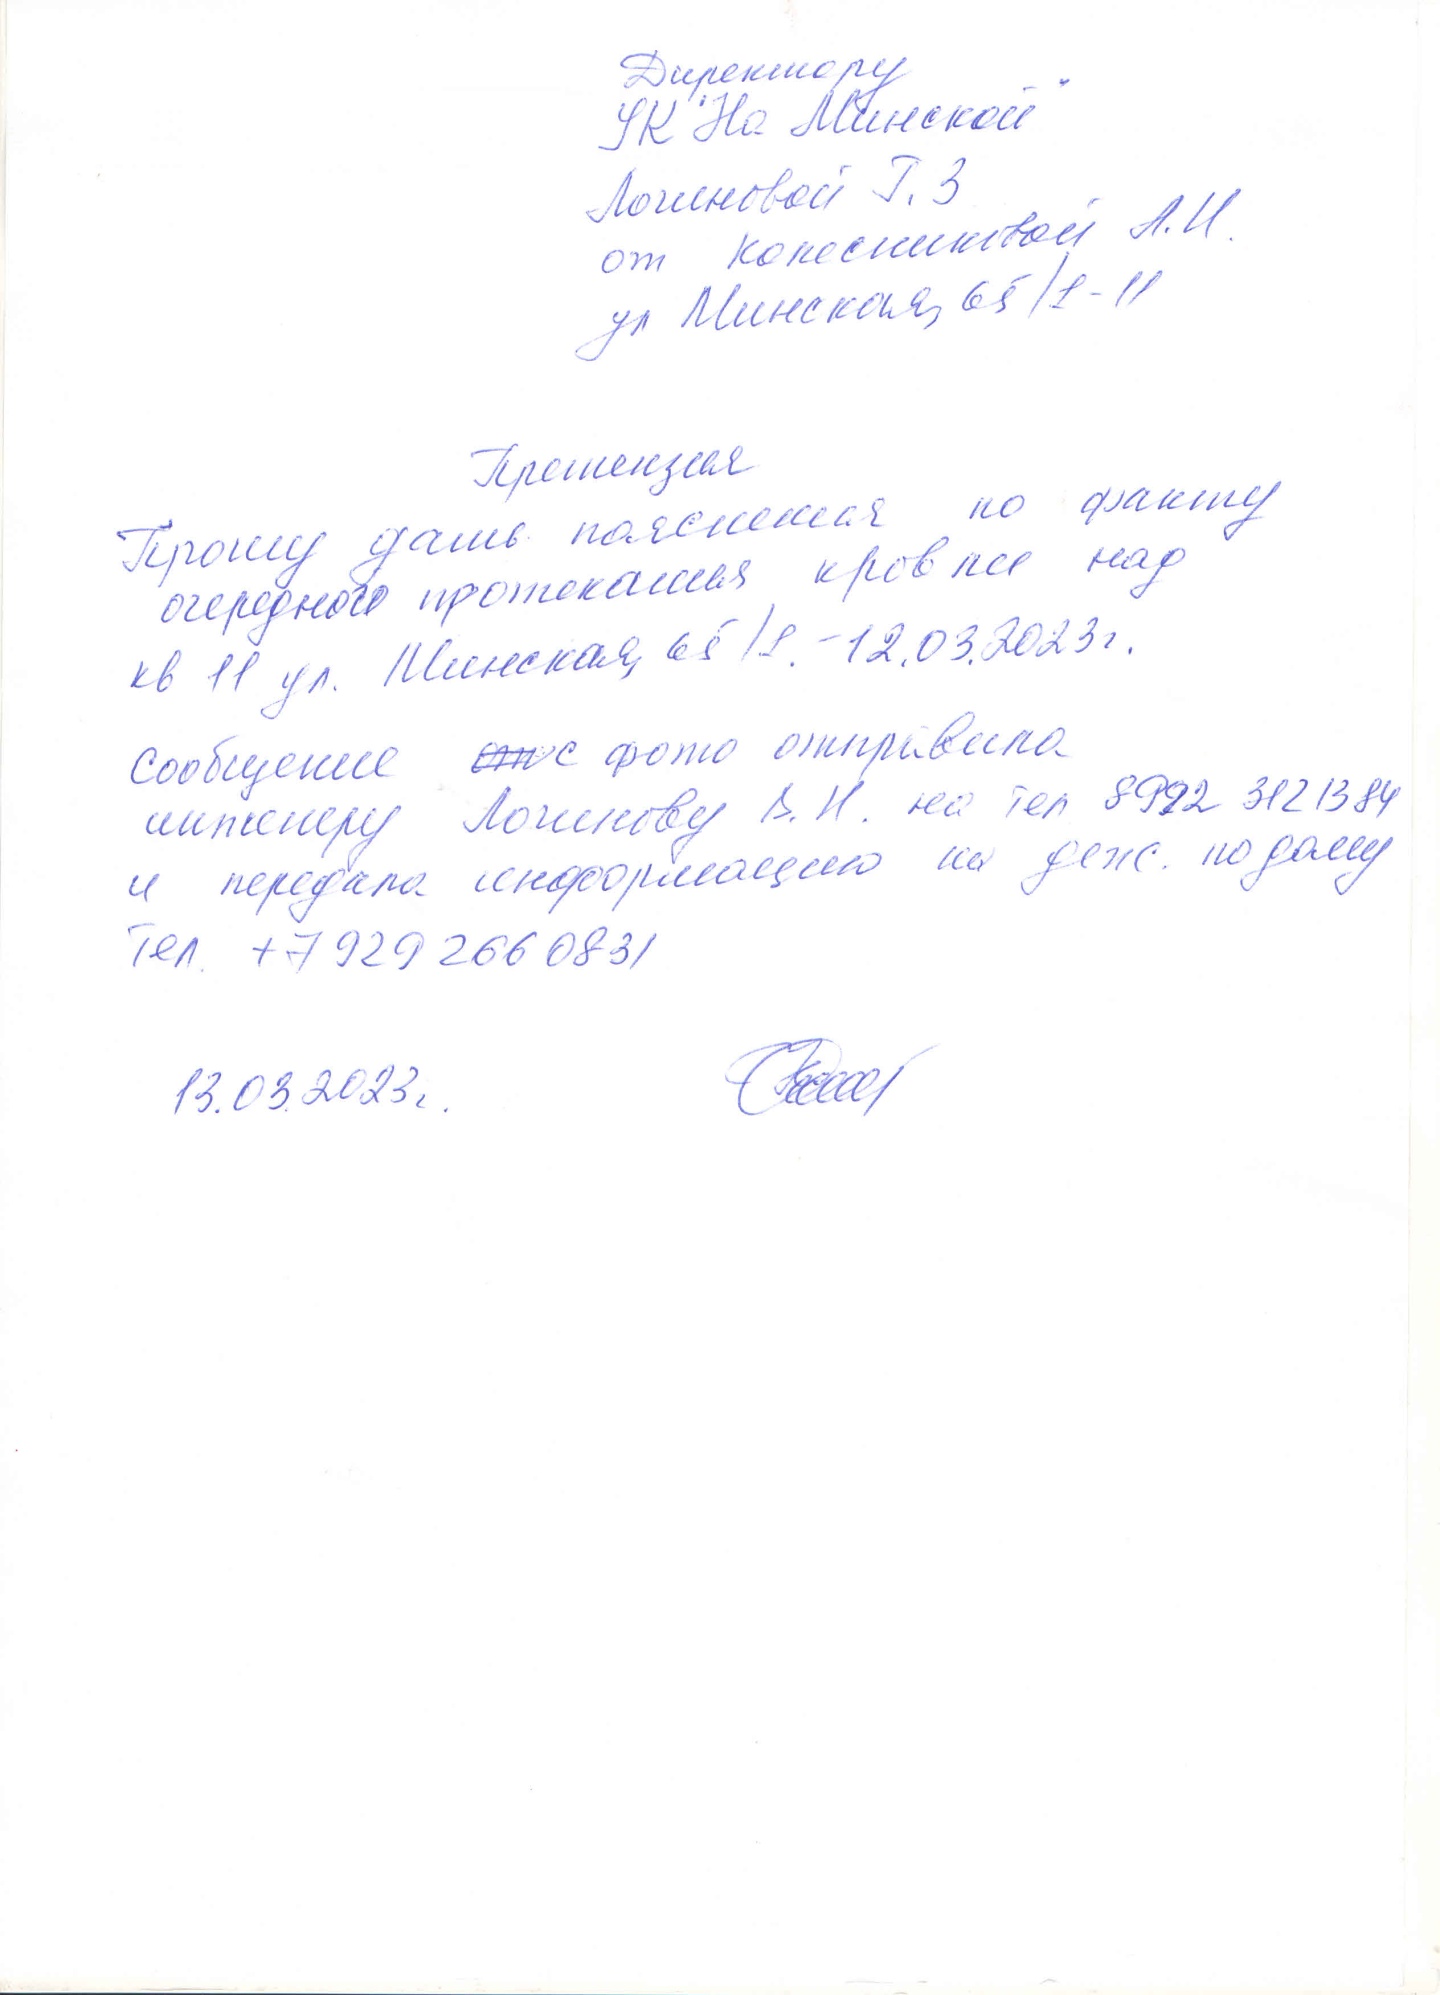 Директору
УК "На Минской"
Логиновой Т. З
от Колесниковой А.И.
ул Минская, 65/1-11
Претензия
Прошу дать пояснения по факту
очередного протекания кровли над
кв 11 ул. Минская, 65/1. - 12.03.2023г.
Сообщение с фото отправила
инженеру Логинову В.И. на тел 8992 3121384
и передала информацию на деж. по дому
тел. +7 929 266 0831
13.03.2023г.